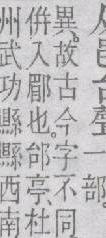 从邑台聲一部。
異。故古今字不同
併入郿也。邰亭、杜
州武功縣縣西南